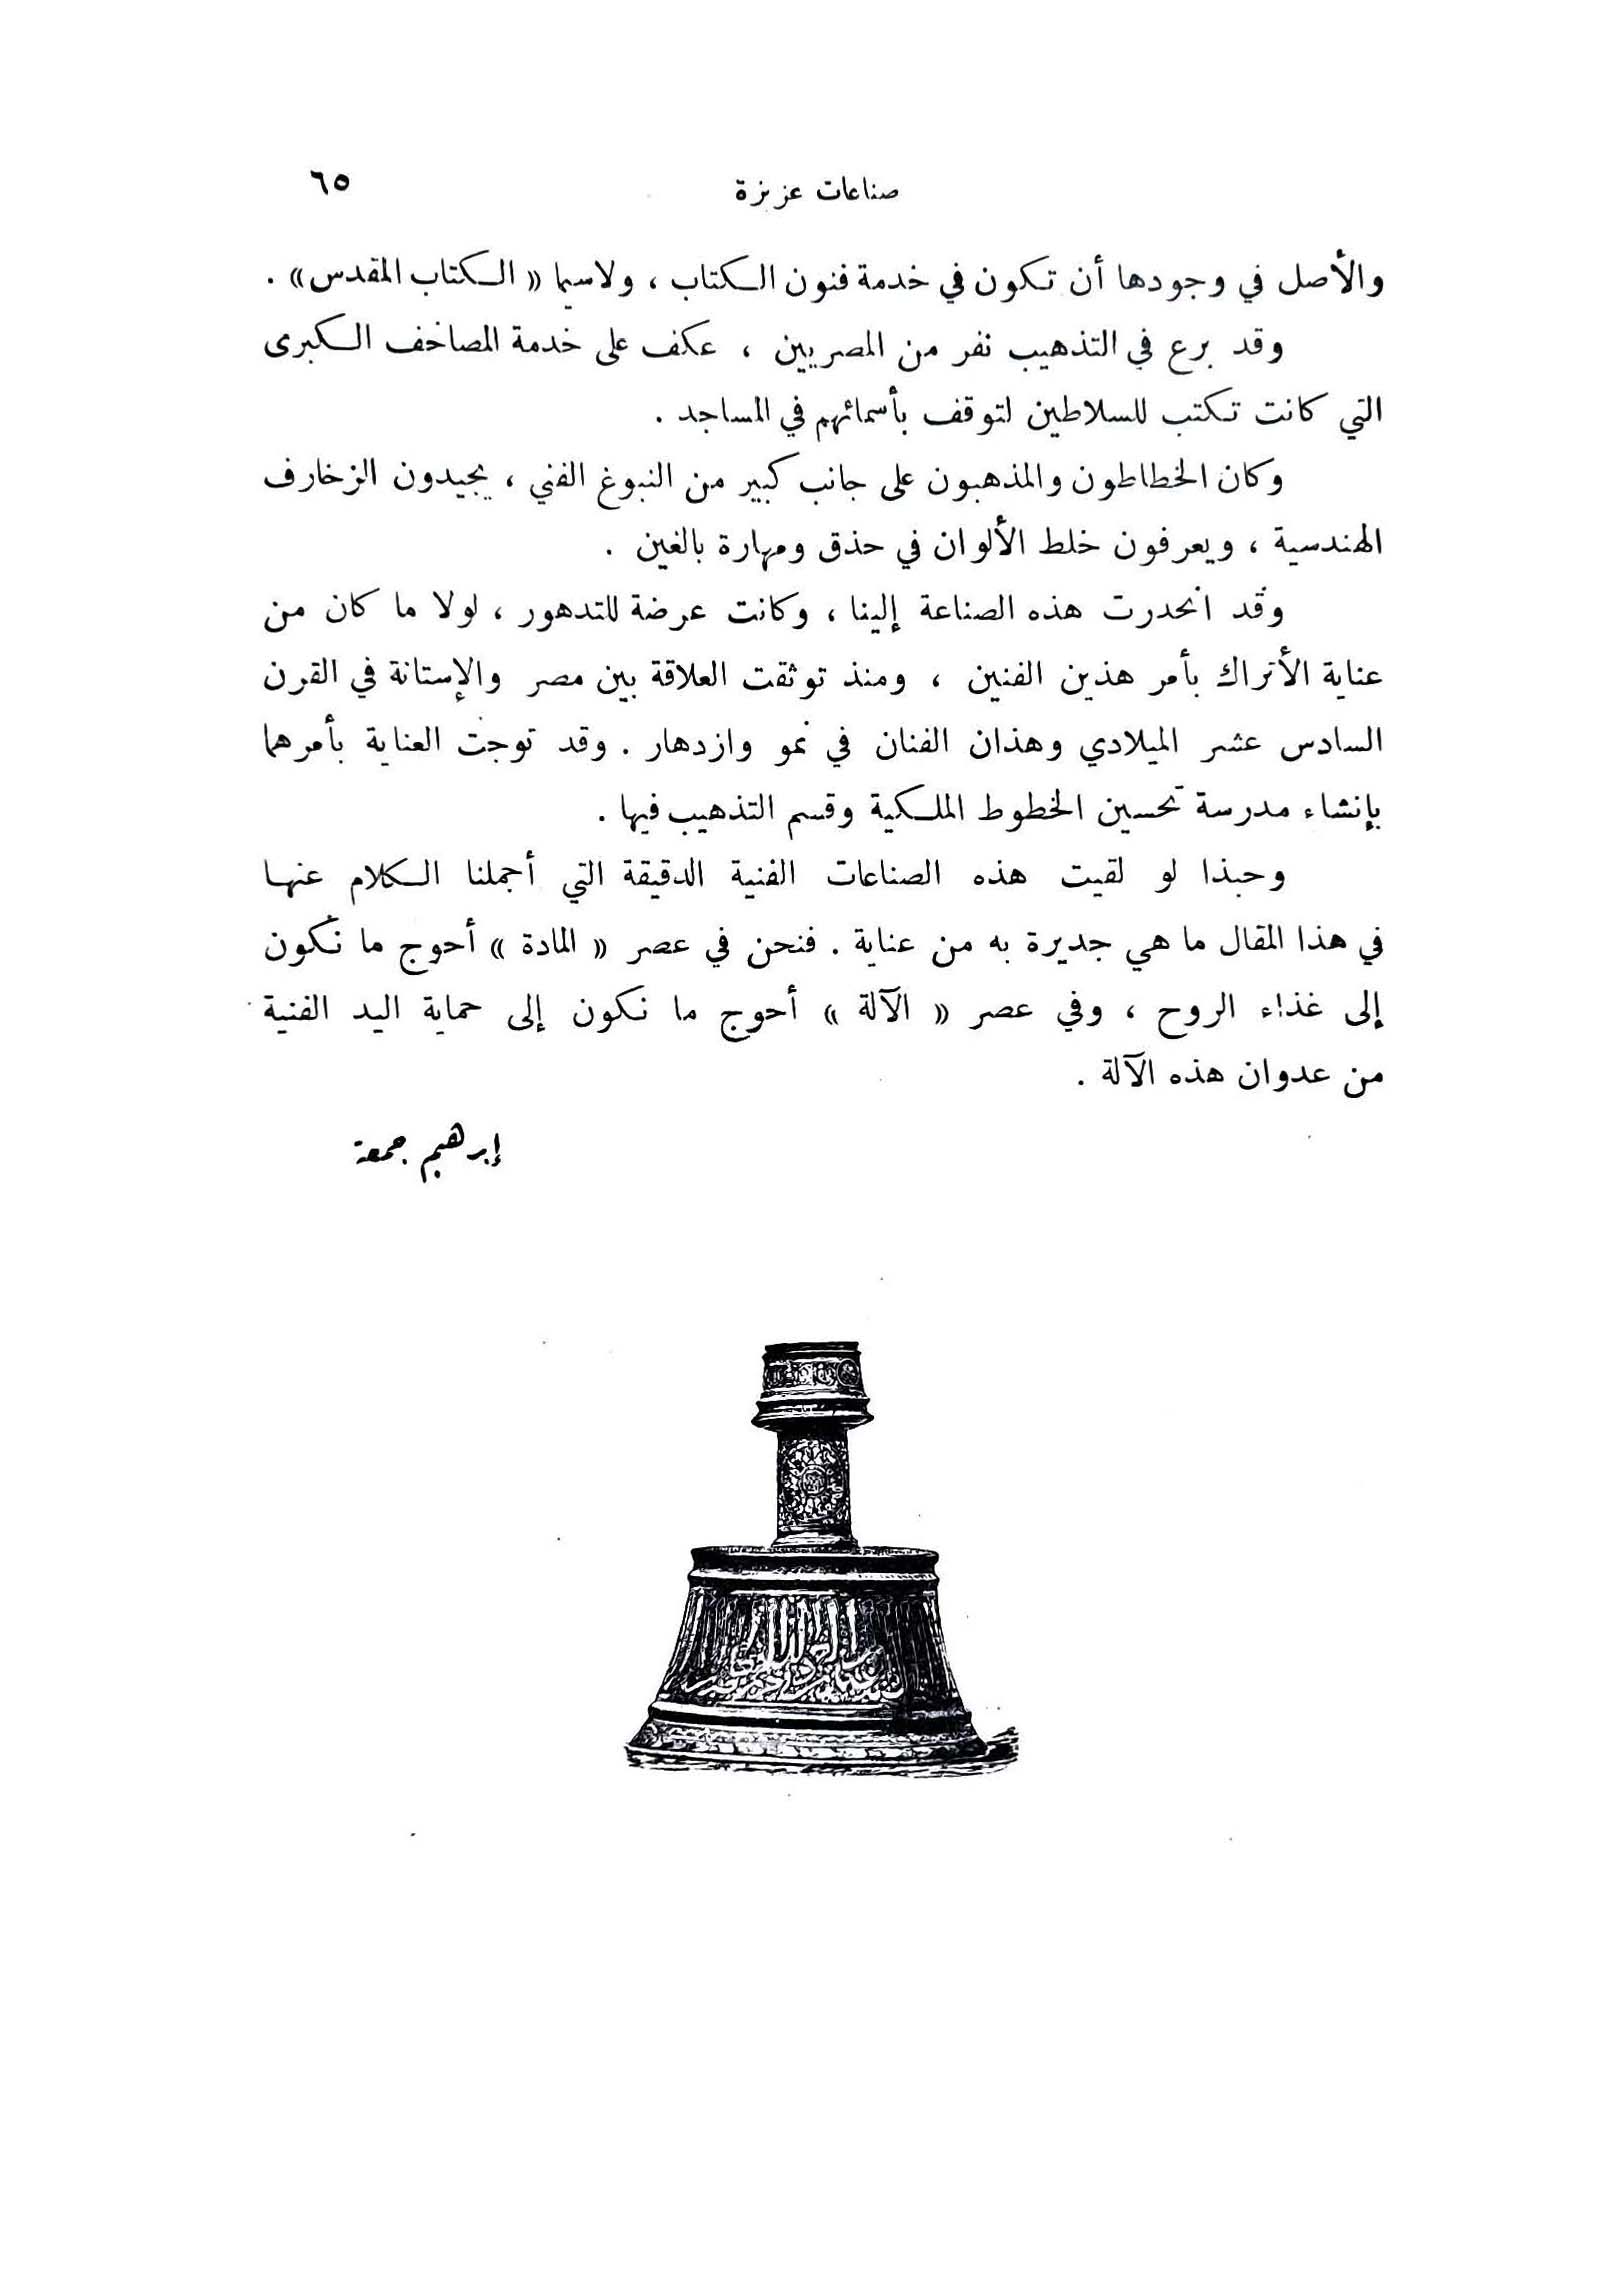 صناعات عزيزة ٦٥
والأصل في وجودها أن تكون في خدمة فنون الكتاب ، ولاسيما « الكتاب المقدس» .
وقد برع في التذهيب نفر من المصريين ، عكف على خدمة المصاحف الكبرى
التي كانت تكتب للسلاطين لتوقف بأسمائهم في المساجد .
وكان الخطاطون والمذهبون على جانب كبير من النبوغ الفني ، يجيدون الزخارف
الهندسية ، ويعرفون خلط الألوان في حذق ومهارة بالغين .
وقد انحدرت هذه الصناعة إلينا ، وكانت عرضة للتدهور ، لولا ما كان من
عناية الأتراك بأمر هذين الفنين ، ومنذ توثقت العلاقة بين مصر والإستانة في القرن
السادس عشر الميلادي وهذان الفنان في نمو وازدهار . وقد توجت العناية بأمرهما
بإنشاء مدرسة تحسين الخطوط الملكية وقسم التذهيب فيها .
وحبذا لو لقيت هذه الصناعات الفنية الدقيقة التي أجملنا الكلام عنها
في هذا المقال ما هي جديرة به من عناية . فنحن في عصر « المادة » أحوج ما نكون
إلى غذاء الروح ، وفي عصر « الآلة » أحوج ما نكون إلى حماية اليد الفنية
من عدوان هذه الآلة .
إبرهيم جمعة